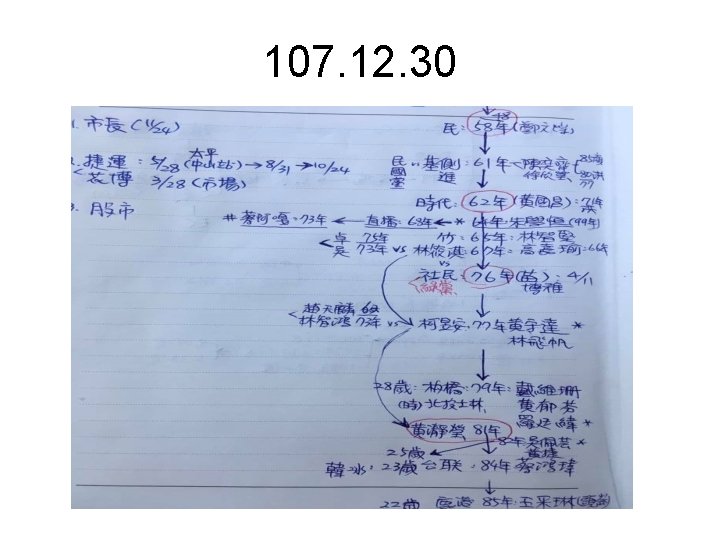 107.12.30
1. 市長(11/24)
民: 58年(鄭文燦)
捷運: 5/28(中山站)→8/31→10/24
太平
<花博 3/28(市場)
民國黨 基側進: 61年<陳奕齋
徐欣瑩
時代: 62年(黃國昌): 71年
3. 股市
#蔡阿嘎: 73年 ← 直播: 68年 ←* 64年: 朱學恒(99年)
竹: 65年: 林智堅
<卓 75年
吳 73年 vs 林筱淇: 67年: 高嘉瑜: 66年
vs
社民: 76年(苗): 4/11
博雅
<趙天麟
林智鴻 73年 vs 柯昱安: 77年 黃守達*
林飛帆
28歲: 板橋: 79年: 戴維珊
(時)北投士林 黃郁芬
黃瀞瑩 81年
8年吳佩芸*
25歲 黃捷
韓冰: 23歲 台联: 84年 蔡鴻
22歲 85年: 王采琳